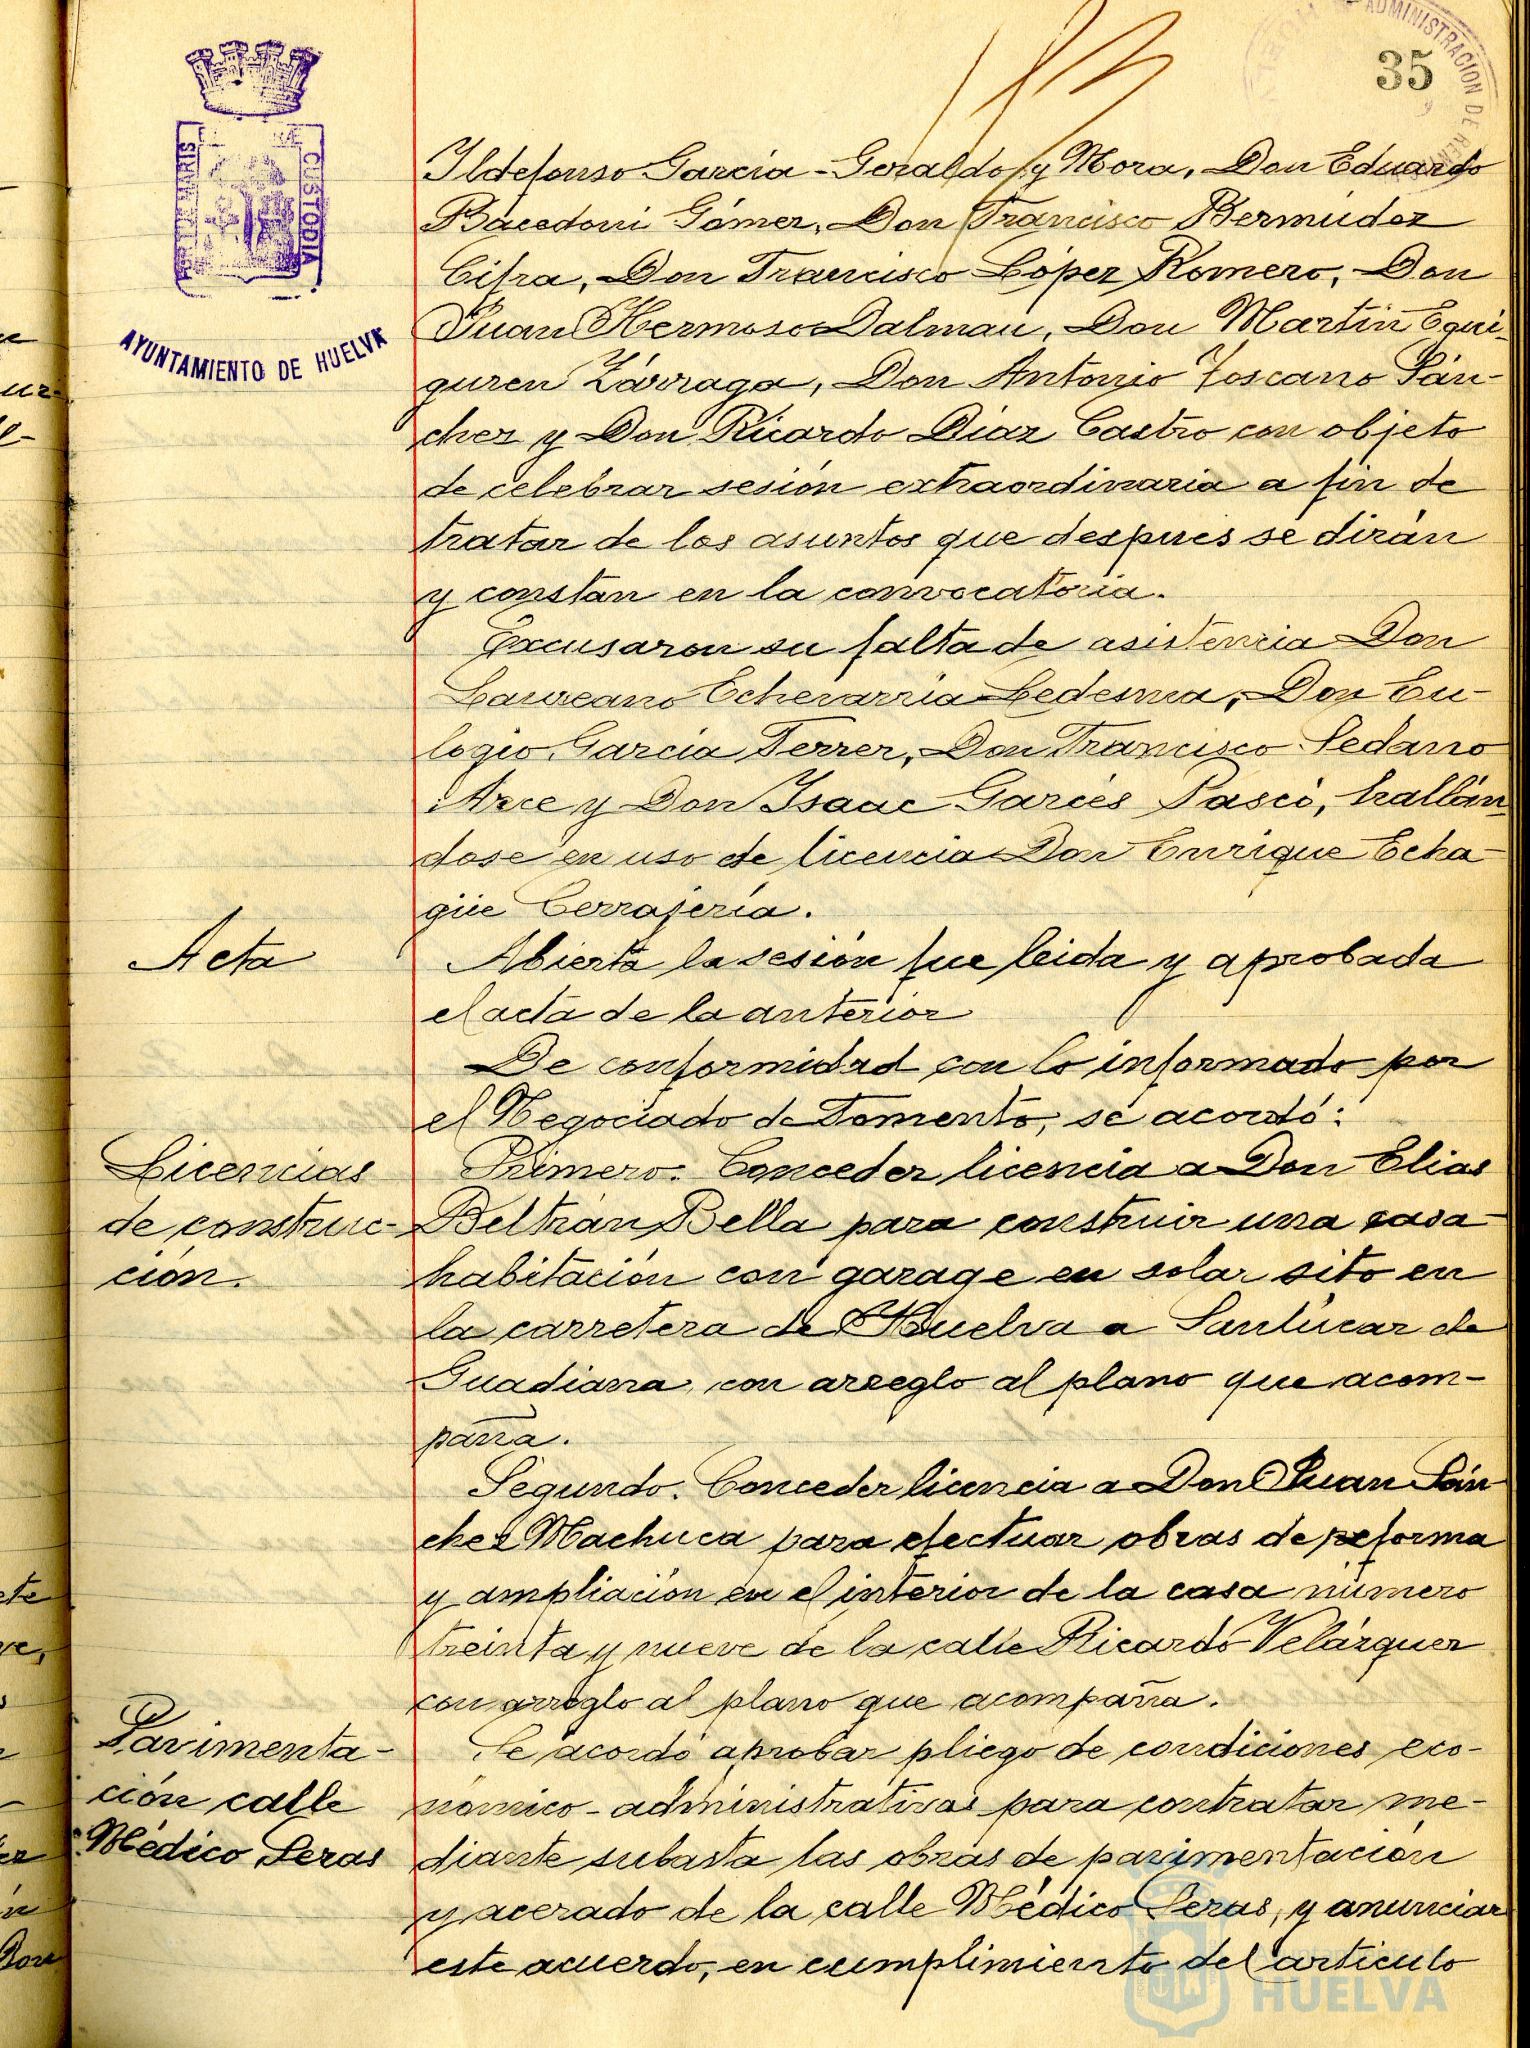 35
ADMINISTRACION DE
PORTUS MARIS
CUSTODIA
AYUNTAMIENTO DE HUELVA
Ildefonso García-Geraldo y Mora, Don Eduardo
Bacedoni Gómez, Don Francisco Bermúdez
Cifra, Don Francisco López Romero, Don
Juan Hermoso Dalmau, Don Martín Egui-
guren Zárraga, Don Antonio Toscano Sán-
chez y Don Ricardo Díaz Castro con objeto
de celebrar sesión extraordinaria a fin de
tratar de los asuntos que despues se dirán
y constan en la convocatoria.
Excusaron su falta de asistencia Don
Laureano Echevarría Ledesma, Don Eu-
logio García Ferrer, Don Francisco Sedano
Arce y Don Isaac Garcés Pascó, hallán-
dose en uso de licencia Don Enrique Echa-
güe Cerrajería.
Acta
Abierta la sesión fue leida y aprobada
el acta de la anterior
De conformidad con lo informado por
el Negociado de Fomento, se acordó:
Licencias
de construc-
ción.
Primero. Conceder licencia a Don Elias
Beltrán Bella para construir una casa
habitación con garage en solar sito en
la carretera de Huelva a Sanlúcar de
Guadiana, con arreglo al plano que acom-
paña.
Segundo. Conceder licencia a Don Juan Sán-
chez Machuca para efectuar obras de reforma
y ampliación en el interior de la casa número
treinta y nueve de la calle Ricardo Velázquez
con arreglo al plano que acompaña.
Pavimenta-
ción calle
Médico Seras
Se acordó aprobar pliego de condiciones eco-
nómico-administrativas para contratar me-
diante subasta las obras de pavimentación
y acerado de la calle Médico Seras, y anunciar
este acuerdo, en cumplimiento del artículo
HUELVA